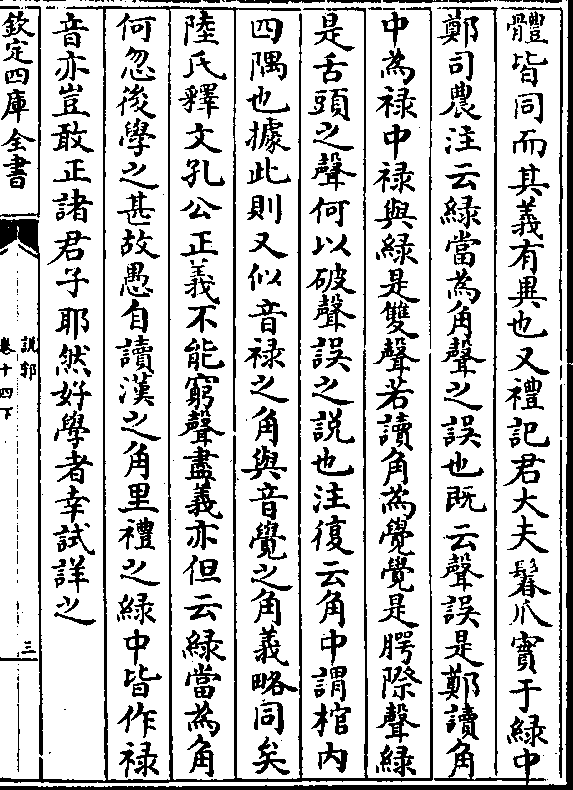 體皆同而其義有異也又禮記君大夫鬊爪實于緑中
鄭司農注云緑當為角聲之誤也既云聲誤是鄭讀角
中為禄中禄與緑是雙聲若讀角為覺覺是腭際聲緑
是舌頭之聲何以破聲誤之説也注復云角中謂棺内
四隅也據此則又似音禄之角與音覺之角義略同矣
陸氏釋文孔公正義不能窮聲盡義亦但云緑當為角
何忽後學之甚故愚自讀漢之角里禮之緑中皆作禄
音亦豈敢正諸君子耶然好學者幸試詳之
欽定四庫全書
説郛
卷十四下
三